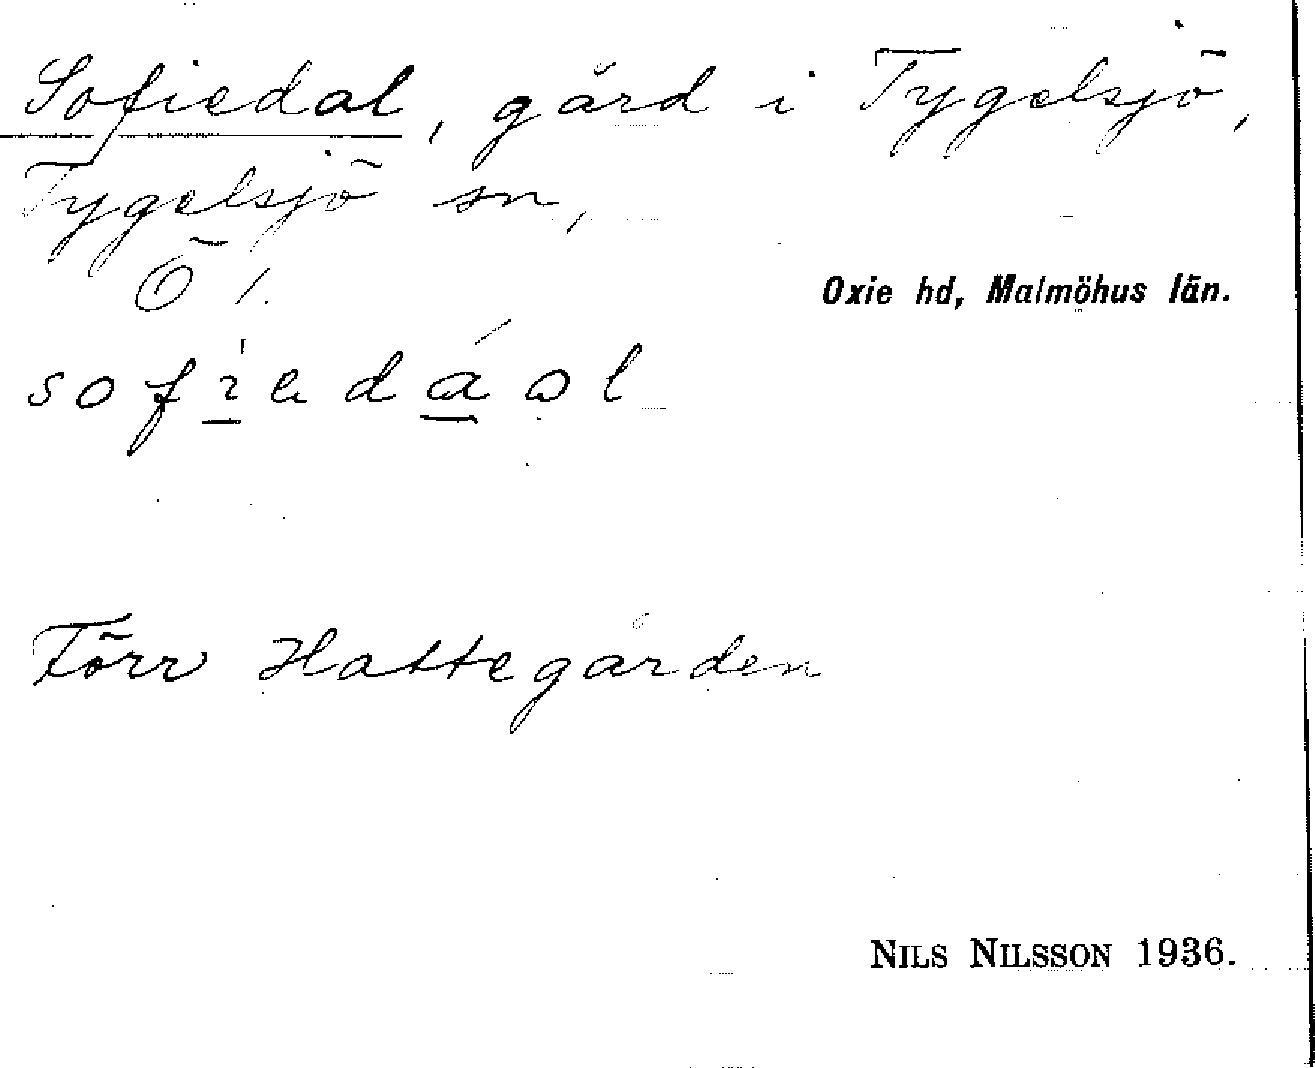 Sofiedal, gård i Tygelsjö,
Tygelsjö sn,
Ö 1.
Oxie hd, Malmöhus län.
sofìedáol
Förr Hattegården
NILS NILSSON 1936.